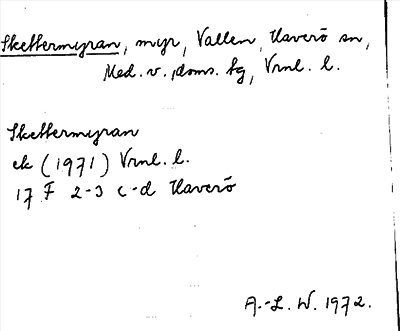 Skettermyran, myr, Vallen, Haverö sn,
Med. v. doms. tg, Vrnl. l.
Skettermyran
ek (1971) Vrnl. l.
17 F 2-3 c-d Haverö
A.-L. W. 1972.